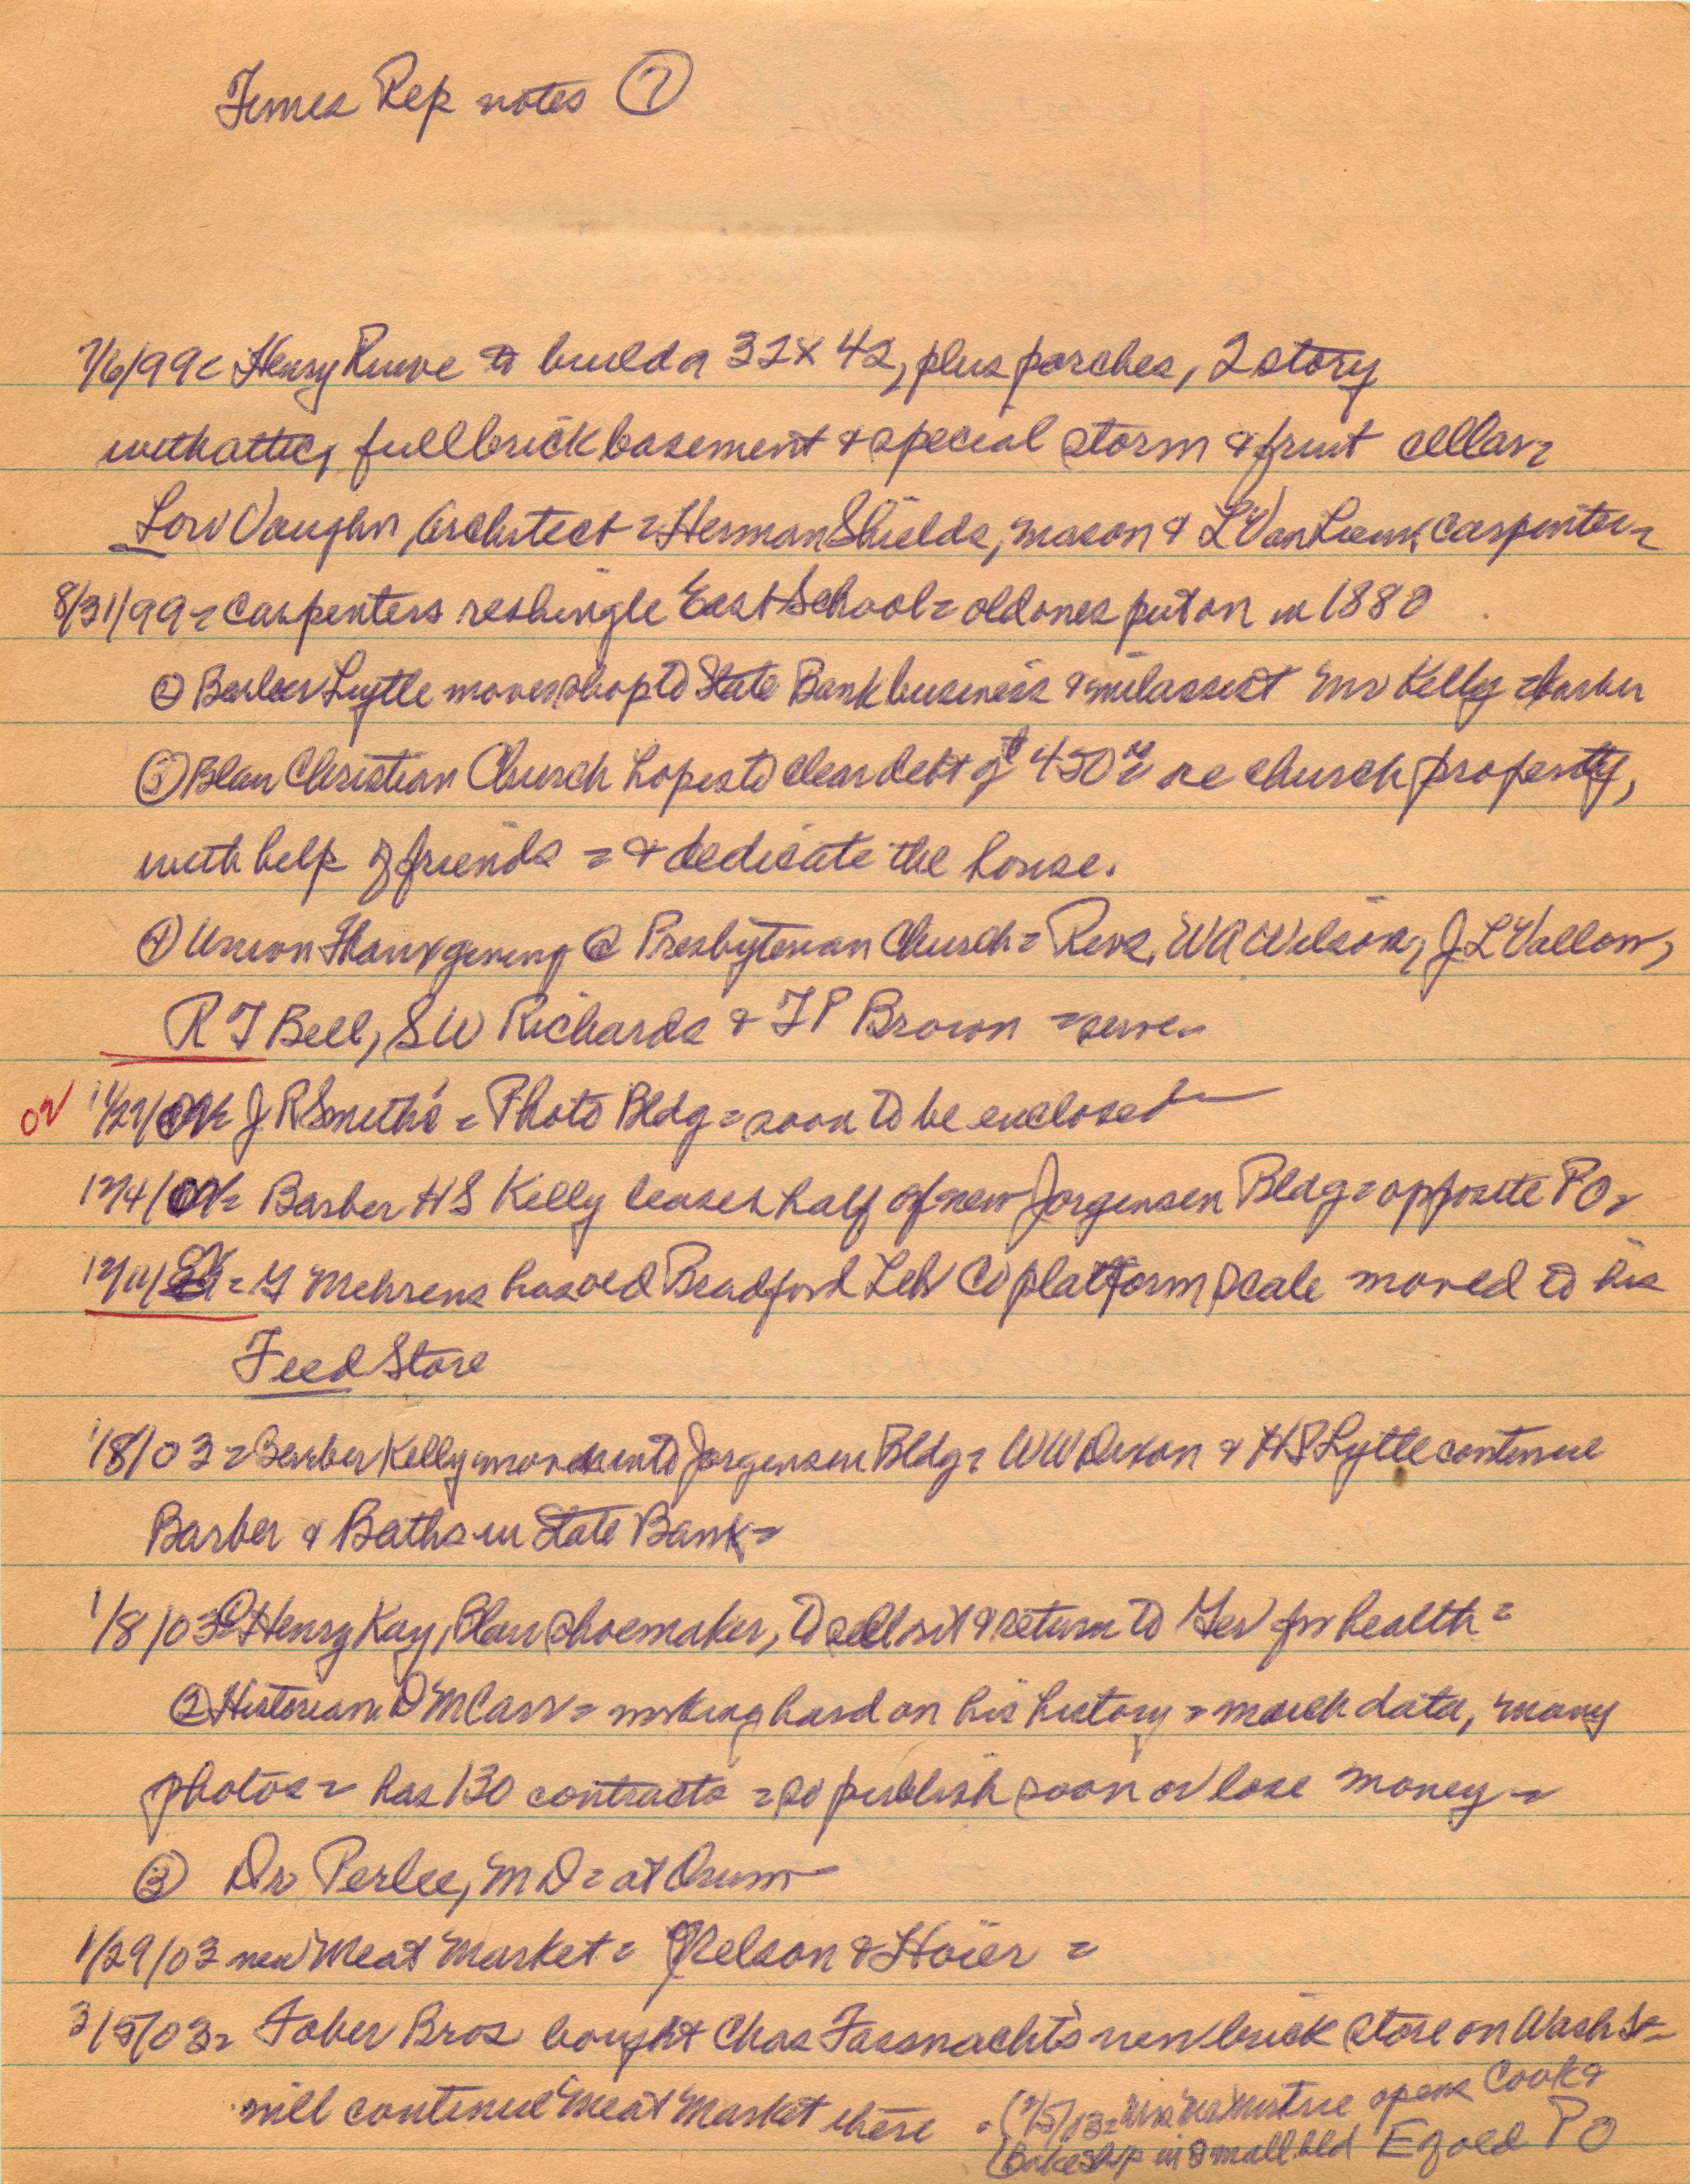 Times Rep notes ⑦
7/6/99= Henry Ruwe to build a 32 x 42, plus porches, 2 story
with attic, full brick basement & special storm & fruit cellar=
Low Vaughn, Architect = Herman Shields, mason & L Van carpenter=
8/31/99= Carpenters reshingle East School= old ones put on in 1880
② Barber Lytle moves shop to State Bank business & will assist Mr Kelly = barber
③ Blair Christian Church hopes to clear debt of $450 re church property,
with help of friends = & dedicate the house.
④ Union Thanxgiving @ Presbyterian Church= Revs. WA Wilson, J L Vallow,
R T Bell, SW Richards & T P Brown =serve=
02 11/27/02= J R Smith's = Photo Bldg= soon to be enclosed
12/4/02= Barber H S Kelly leases half of new Jorgensen Bldg= opposite PO=
12/11/02= Mehrens has old Bradford Lbr Co platform scale moved to his
Feed Store
1/8/03= Barber Kelly moves into Jorgensen Bldg= WW Dixon & HS Lytle continue
Barber & Baths in State Bank=
1/8/03= ① Henry Kay, Blair shoemaker, to sell out & return to for health=
② Historian= working hard on his history = much data, many
photos= has 130 contracts = to publish soon or lose money=
③ Dr Perlee, M D= at Orum
1/29/03 new Meat Market= Nelson & Hoier =
3/5/03= Faber Bros bought Chas Fassnacht's new brick store on Wash St=
will continue Meat Market there. = opens Cook &
Bakeshop in small bld E of old PO